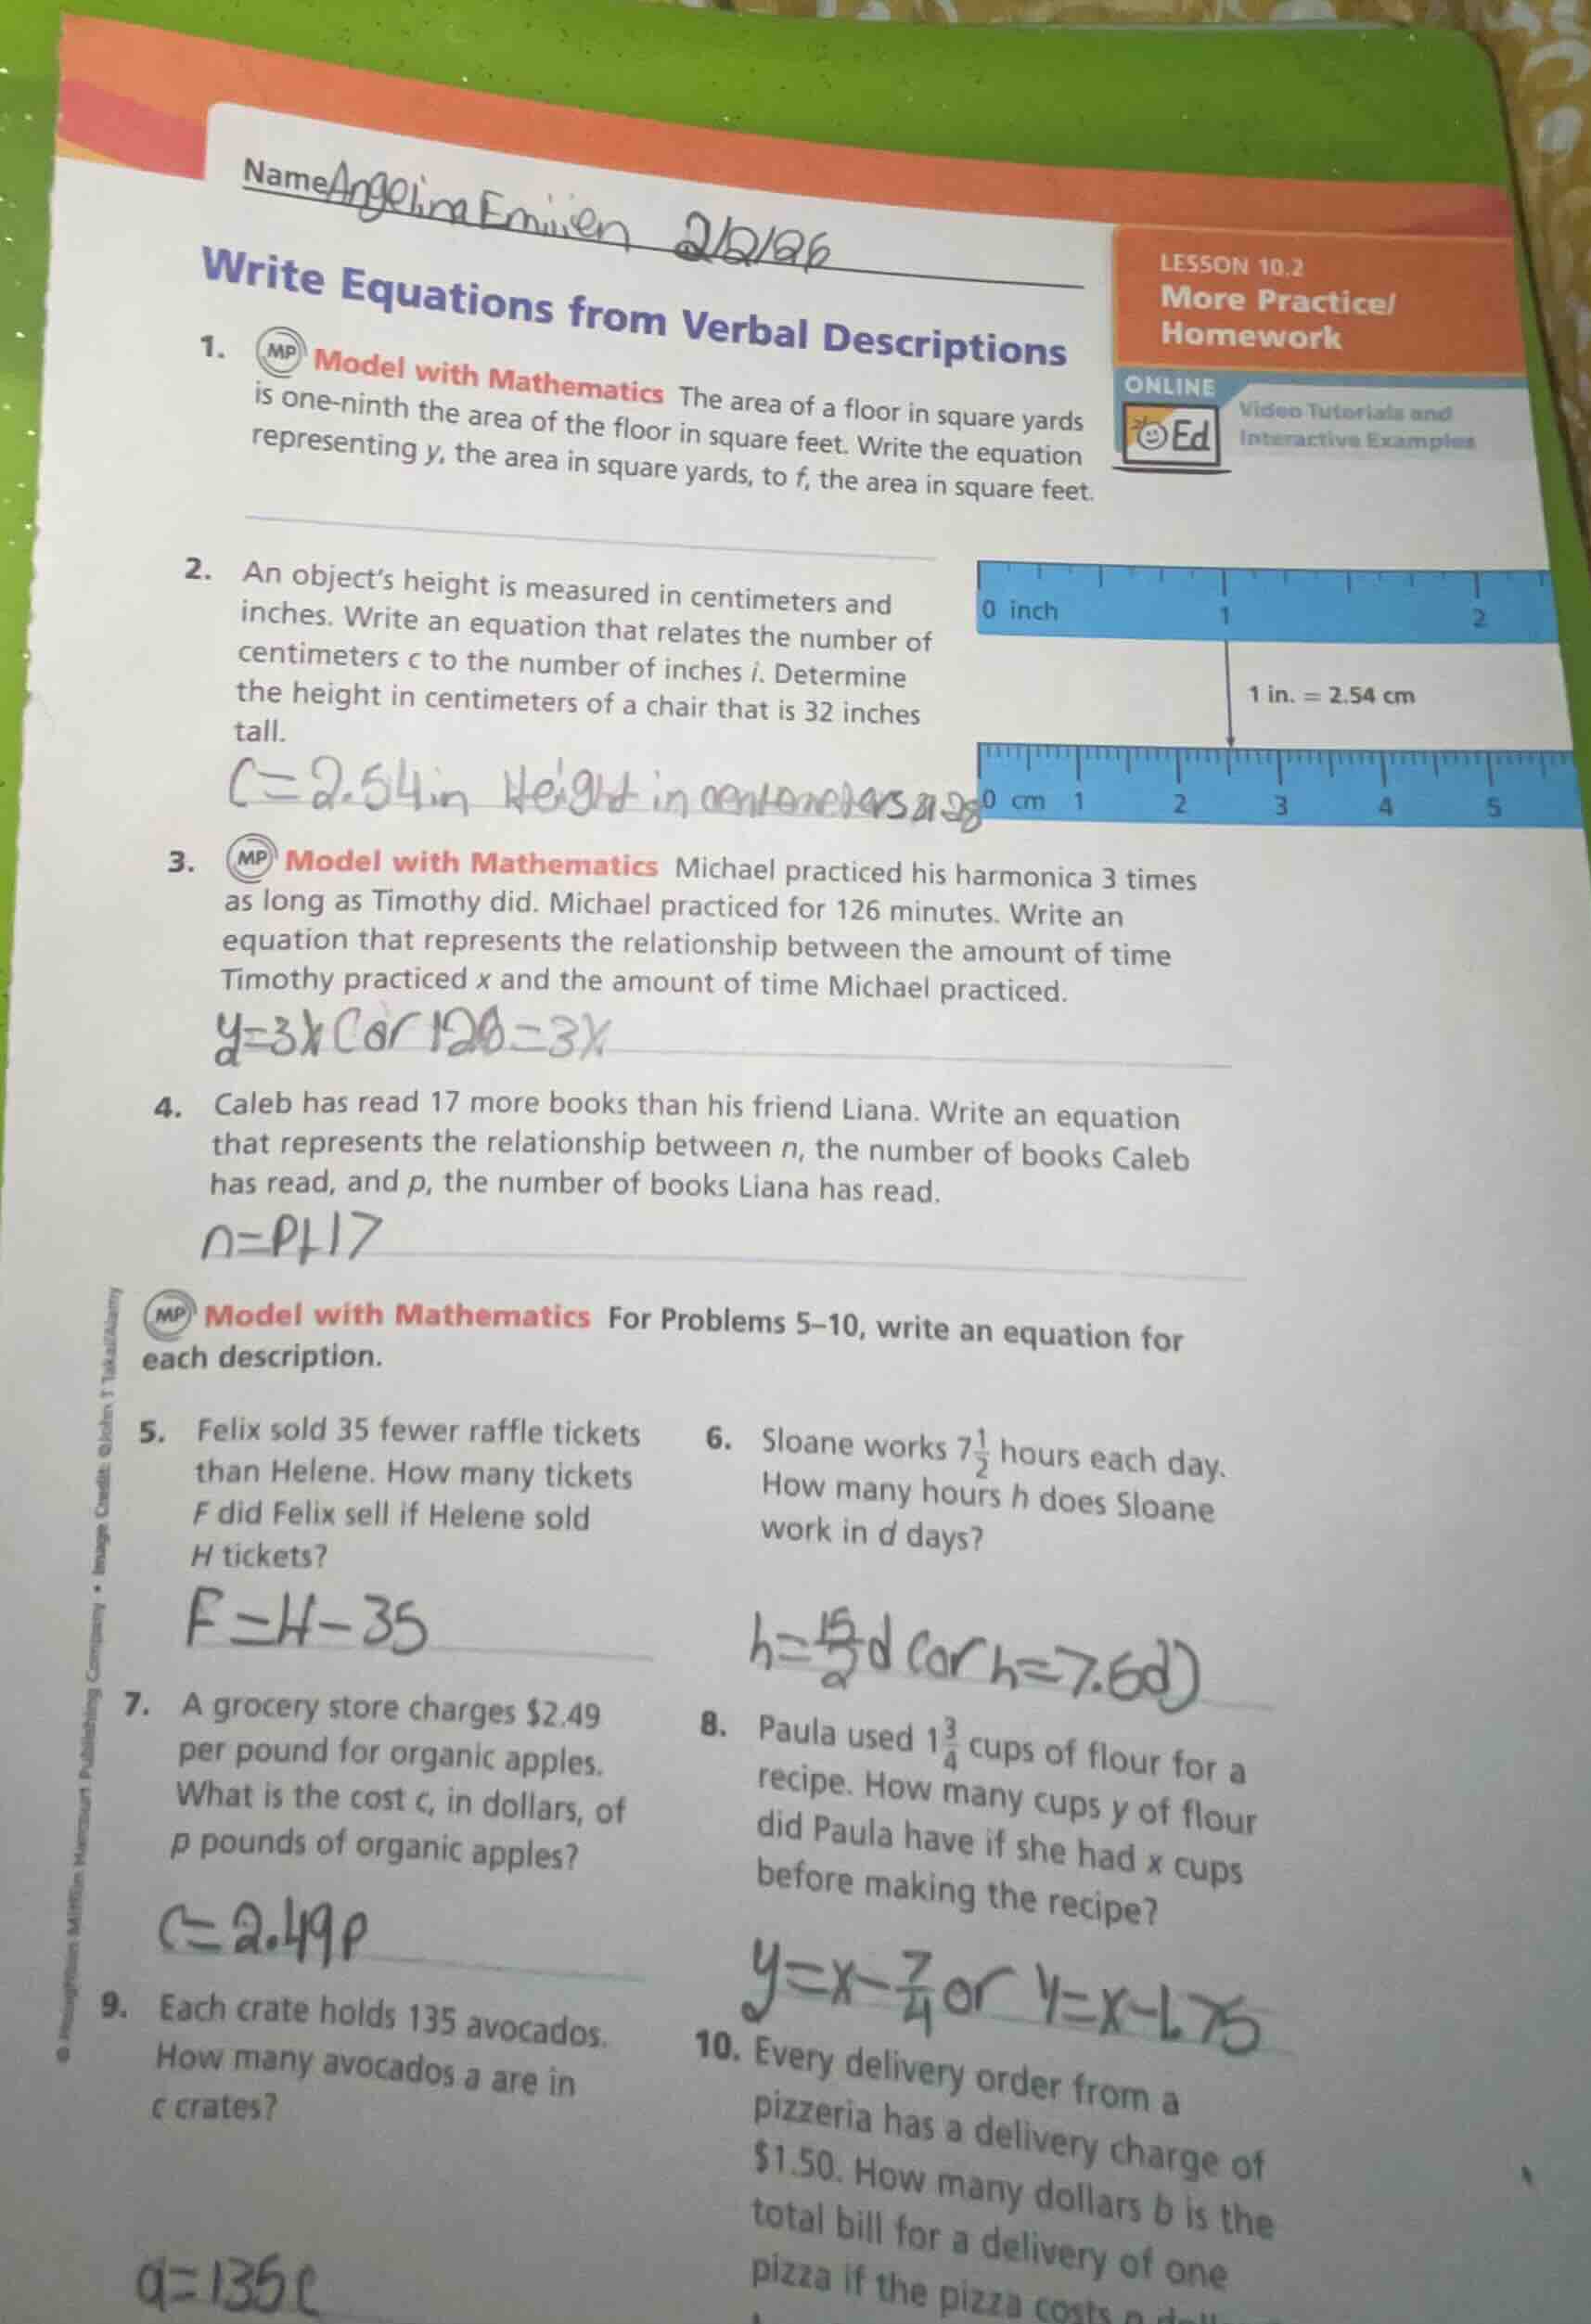 Name Angelina Emilien 2/2/26
LESSON 10.2
More Practice/
Homework
ONLINE
Ed
Video Tutorials and
Interactive Examples
Write Equations from Verbal Descriptions
1. MP Model with Mathematics The area of a floor in square yards
is one-ninth the area of the floor in square feet. Write the equation
representing y, the area in square yards, to f, the area in square feet.
2. An object's height is measured in centimeters and
inches. Write an equation that relates the number of
centimeters c to the number of inches i. Determine
the height in centimeters of a chair that is 32 inches
tall.
C=2.54in Height in
0 inch 1 2
1 in. = 2.54 cm
0 cm 1 2 3 4 5
3. MP Model with Mathematics Michael practiced his harmonica 3 times
as long as Timothy did. Michael practiced for 126 minutes. Write an
equation that represents the relationship between the amount of time
Timothy practiced x and the amount of time Michael practiced.
y=3x (or 126=3x
4. Caleb has read 17 more books than his friend Liana. Write an equation
that represents the relationship between n, the number of books Caleb
has read, and p, the number of books Liana has read.
n=P+17
MP Model with Mathematics For Problems 5–10, write an equation for
each description.
5. Felix sold 35 fewer raffle tickets
than Helene. How many tickets
F did Felix sell if Helene sold
H tickets?
F=H-35
6. Sloane works 7 1/2 hours each day.
How many hours h does Sloane
work in d days?
h=15/2 d (or h=7.5d)
7. A grocery store charges $2.49
per pound for organic apples.
What is the cost c, in dollars, of
p pounds of organic apples?
C=2.49p
8. Paula used 1 3/4 cups of flour for a
recipe. How many cups y of flour
did Paula have if she had x cups
before making the recipe?
y=x-7/4 or y=x-1.75
9. Each crate holds 135 avocados.
How many avocados a are in
c crates?
a=135c
10. Every delivery order from a
pizzeria has a delivery charge of
$1.50. How many dollars b is the
total bill for a delivery of one
pizza if the pizza costs
© Houghton Mifflin Harcourt Publishing Company • Image Credit: ©John T Takai/Alamy